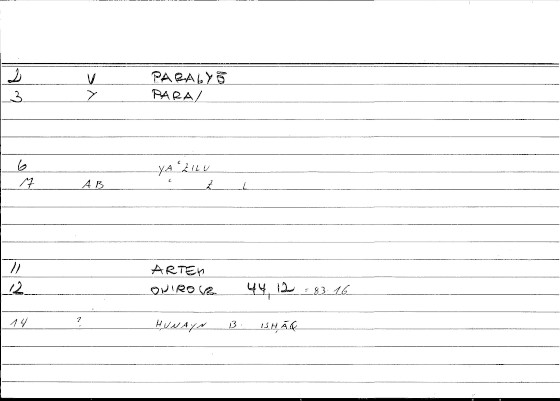 2 V PARALYŌ
3 Y PARA/
6 YAʿŻILU
17 AB ʿ Ż L
11 ARTEM
12 ONIROCR 44,12 = 83.16
14 ? ḤUNAYN B. ISḤĀQ